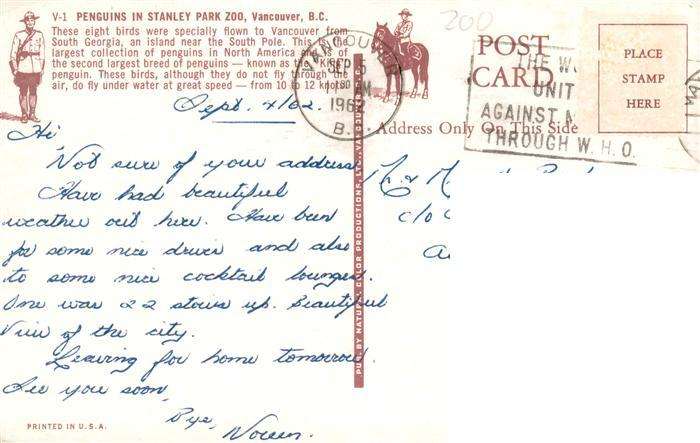 V-1 PENGUINS IN STANLEY PARK ZOO, Vancouver, B.C.
These eight birds were specially flown to Vancouver from
South Georgia, an island near the South Pole. This is the
largest collection of penguins in North America and is of
the second largest breed of penguins — known as the KING
penguin. These birds, although they do not fly through the
air, do fly under water at great speed — from 10 to 12 knots.
VANCOUVER
SEP 5
AM
1962
B.C.
200
POST
CARD
THE W
UNIT
AGAINST M
THROUGH W.H.O.
PLACE
STAMP
HERE
Address Only On This Side
Sept. 4/62.
Hi
Not sure of your address
Have had beautiful
weather out here. Have been
for some nice drives and also
to some nice cocktail lounges.
One was 22 stories up. Beautiful
View of the city.
Leaving for home tomorrow.
See you soon,
Bye,
Noreen.
c/o
PUB. BY NATURAL COLOR PRODUCTIONS LTD., VANCOUVER
PRINTED IN U.S.A.